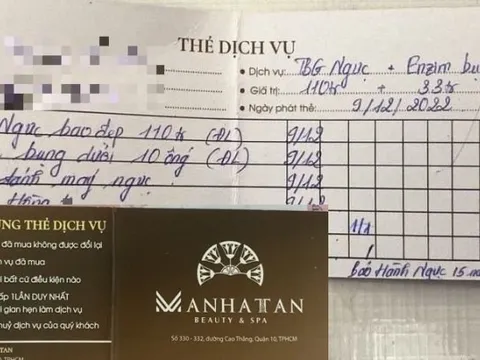 THẺ DỊCH VỤ
• Dịch vụ: TBG Ngực + Enzim bụ
• Giá trị: 110tr + 33tr
• Ngày phát thẻ: 9/12/2022
Ngực bao đẹp 110tr (ĐL) 9/12
bụng dưới 10 ống (ĐL) 9/12
máy ngực 9/12
1/1
Bảo Hành Ngực 15
ỤNG THẺ DỊCH VỤ
đã mua không được đổi lại
h vụ đã mua
i bất cứ điều kiện nào
cấp 1 LẦN DUY NHẤT
i gian hẹn làm dịch vụ
huỷ dịch vụ của quý khách
MANHATTAN
BEAUTY & SPA
Số 330 - 332, đường Cao Thắng, Quận 10, TPHCM